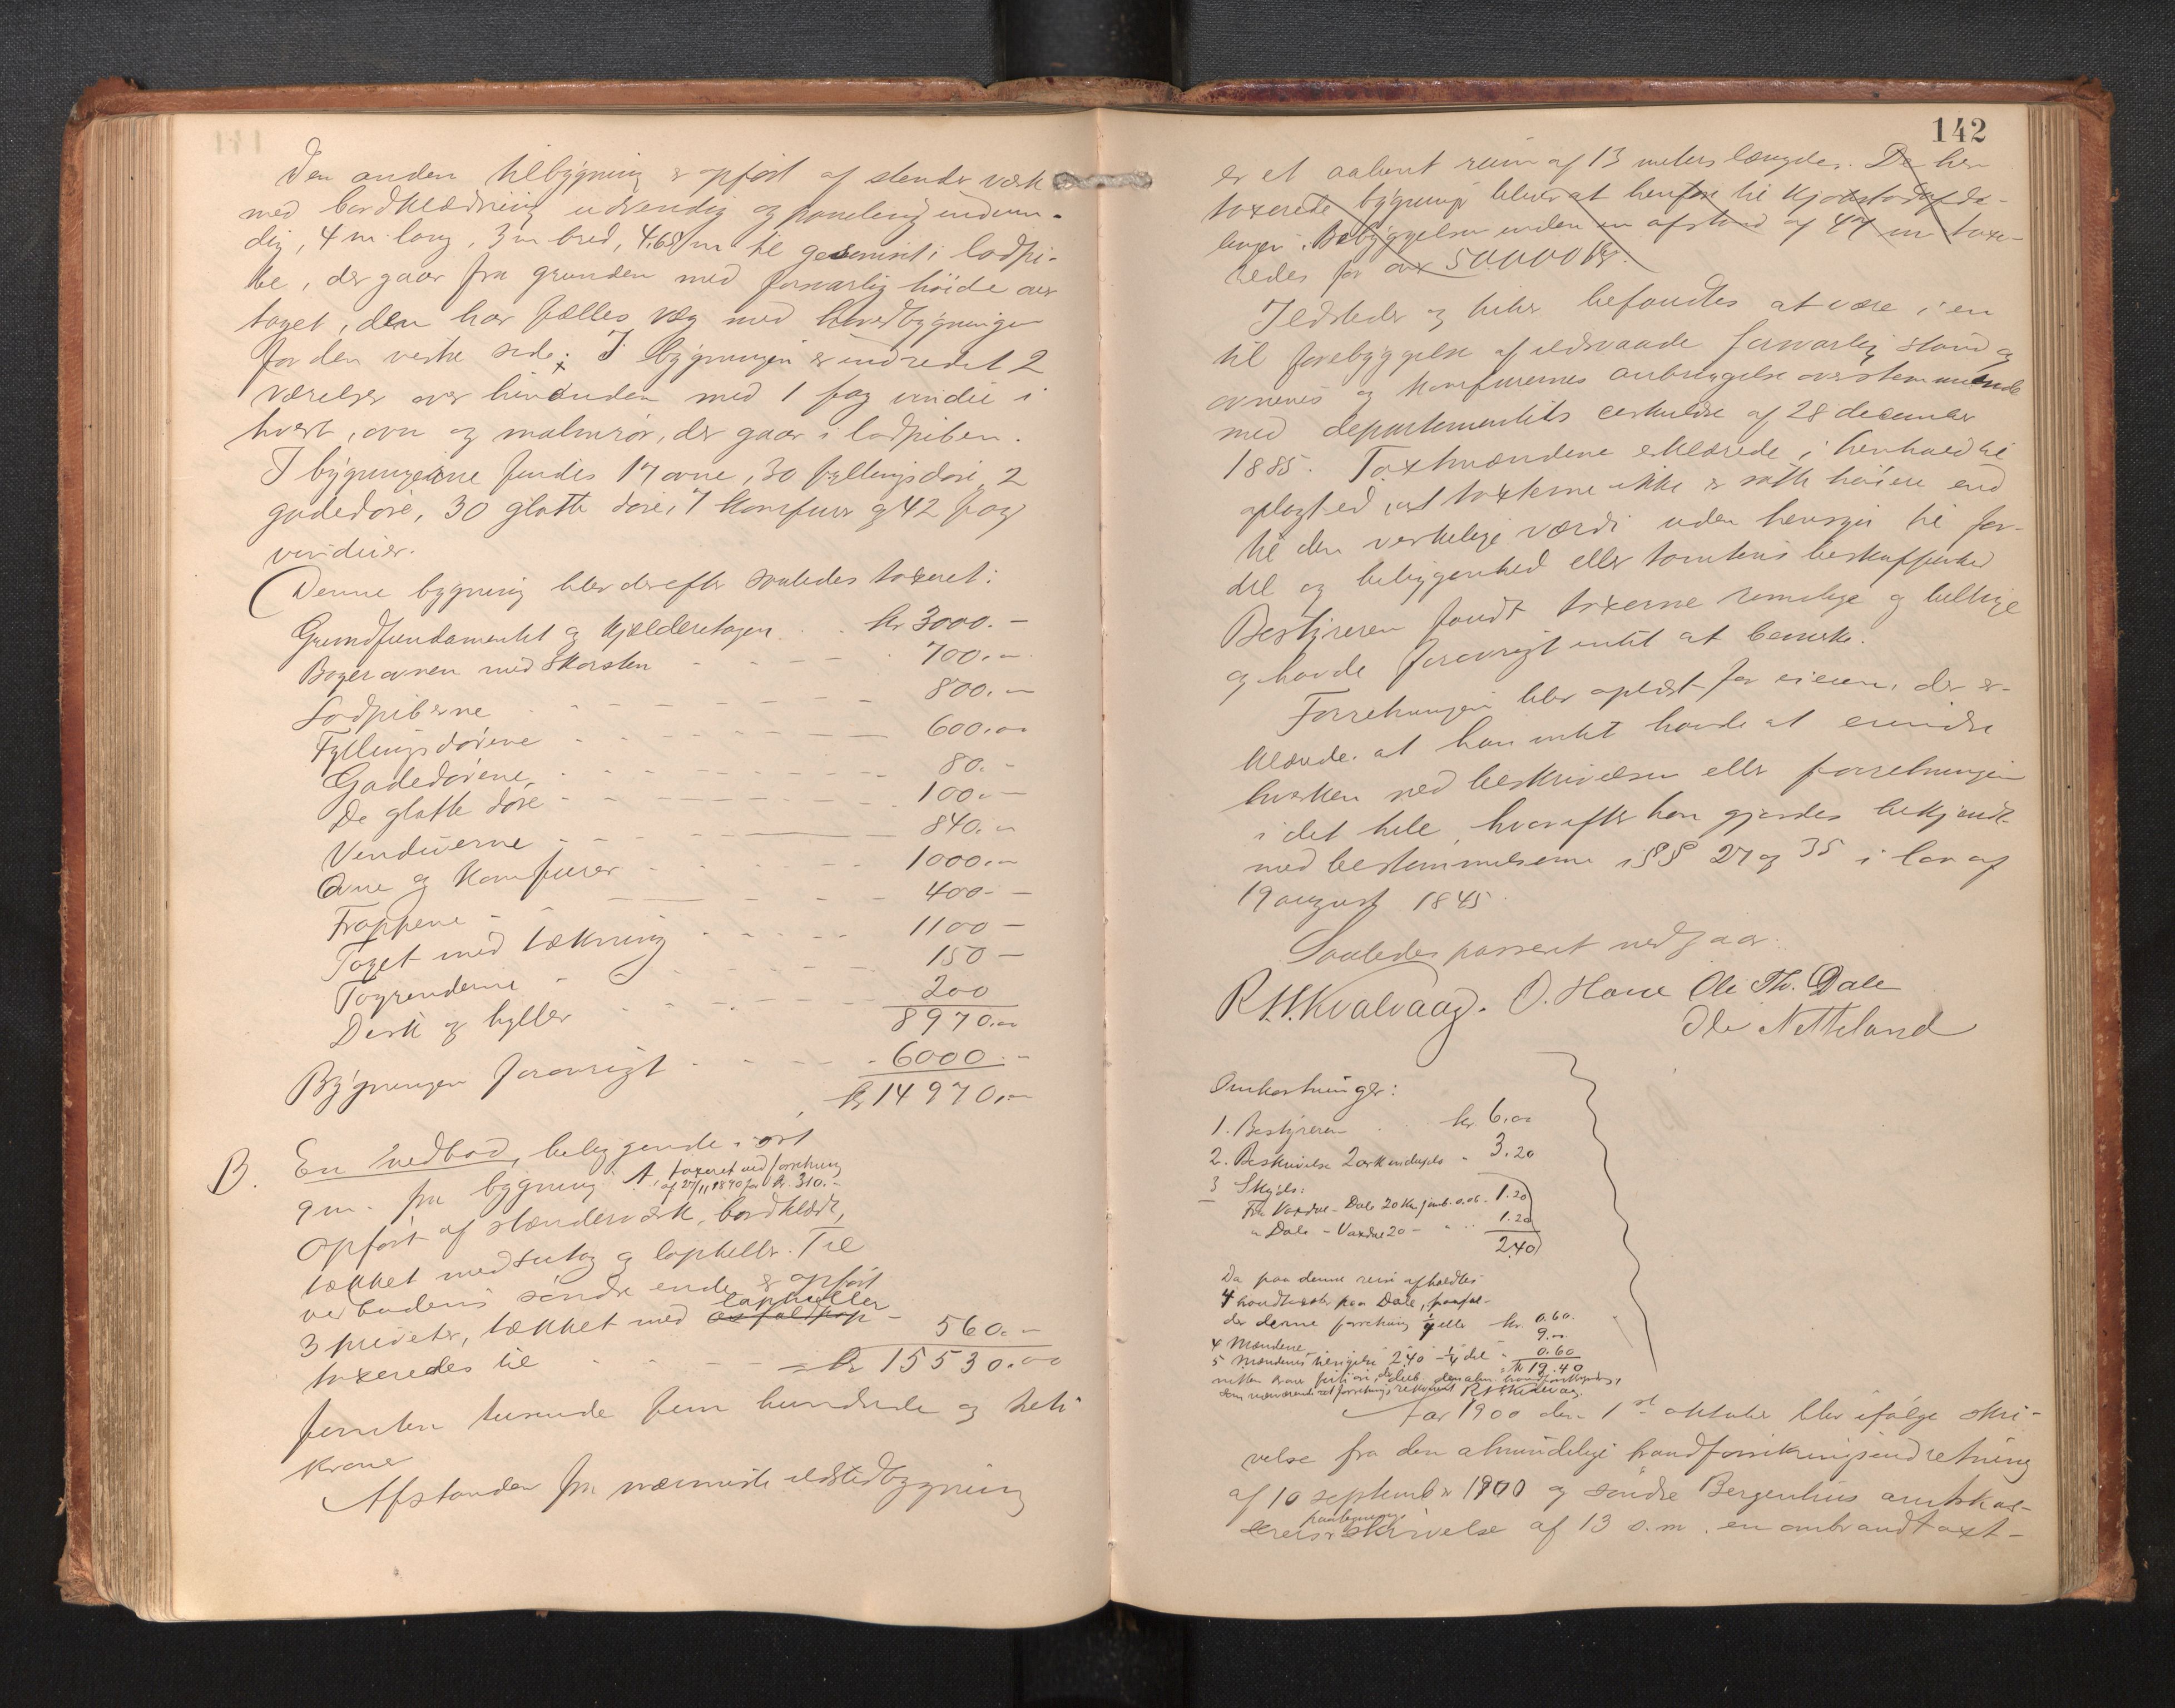 Den anden tilbygning er opført af stenderværk
med bordklædning udvendig og paneling indven-
dig, 4 m lang, 3 m bred, 4,68 m til gesemsit i ladpi-
be, der gaar fra grunden med forsvarlig høide over
taget, den har fælles væg med hovedbygningen
for den vestre side. I bygningen er indredet 2
værelser over hinanden med 1 fag vindu i
hvert, ovn og malmrør, der gaar i ladpiben.
I bygningerne findes 17 ovne, 30 fyllingsdøre, 2
gadedøre, 30 glatte døre, 7 komfurer og 42 fag
vinduer.
Denne bygning blev derefter saaledes taxeret:
Grundfundamentet og kjælderetagen . . kr 3000. -
Bagerovnen med skorsten 700. -
Ladpiberne 800. -
Fyllingsdørene 600. -
Gadedørene 80. -
De glatte døre 100. -
Vinduerne 840. -
Ovne og komfurer 1000. -
Trappene 400. -
Taget med tækning 1100 -
Tagrenderne 150 -
Disk og hyller 200
8970. -
Bygningen forøvrigt 6000. -
kr 14970. -
B. En vedbod, beliggende i øst
9 m. fra bygning A. taxeret ved forretning
af 27/11 1890 for kr. 310. -
Opført af stænderværk, bordklædt,
tækket med sutag og lapheller. Til
vedbodens søndre ende er opført
3 priveter, tækket med laphæller
taxeredes til 560. -
= kr 15530. -
femten tusende fem hundrede og treti
kroner
Afstanden fra nærmeste ildstedbygning
142
er et aabent rum af 13 meters længde. De her
taxerede bygninger bliver at henføre til kjøbstadafde-
lingen. Bebyggelsen inden en afstand af 47 m taxe-
redes for over 50000 kr.
Ildsteder og piber befandtes at være i en
til forebyggelse af ildsvaade forsvarlig stand og
ovnenes og komfurernes anbringelse overstemmende
med departementets cirkulære af 28 december
1885. Taxtmændene erklærede i henhold til
aplagt ed, at taxterne ikke er satte høiere end
til den verkelige værdi uden hensyn til for-
del og beliggenhed eller tomtens beskaffenhed
Bestyreren fandt taxterne rimelige og billige
og havde forøvrigt intet at bemerke.
Forretningen blev oplæst for eieren, der er-
klærede at han intet havde at erindre
hverken ved beskrivelsen eller forretningen
i det hele, hvorefter han gjordes bekjendt
med bestemmelserne i §§ 27 og 35 i lov af
19 august 1845.
Saaledes passeret medgaar.
R. H. Kvalvaag. O. Hove Ole Th. Dale
Ole Netteland
Omkostninger:
1. Bestyreren kr. 6.00
2. Beskrivelse 2 ark enduplo - 3.20
3 Skyds:
Fra Vaxdal - Dale 20 km jernb. 0.06. 1.20
" Dale - Vaxdal 20 - " 1.20
2.40
Da paa denne reise afholdtes
4 brandtaxter paa Dale, paafal-
der denne forretning 1/4 eller kr. 0.60.
4 Mændene 9. -
5 Mændenes tilsigelse 2.40 - 1/4 del - 0.60
= kr 19.40
R H Kvalvaag.
Aar 1900 den 1st oktober blev ifølge skri-
velse fra den almindelige brandforsikringsindretning
af 10 september 1900 og søndre Bergenhus amtskas-
serers paategnings skrivelse af 13 s.m. en ombrandtaxt-